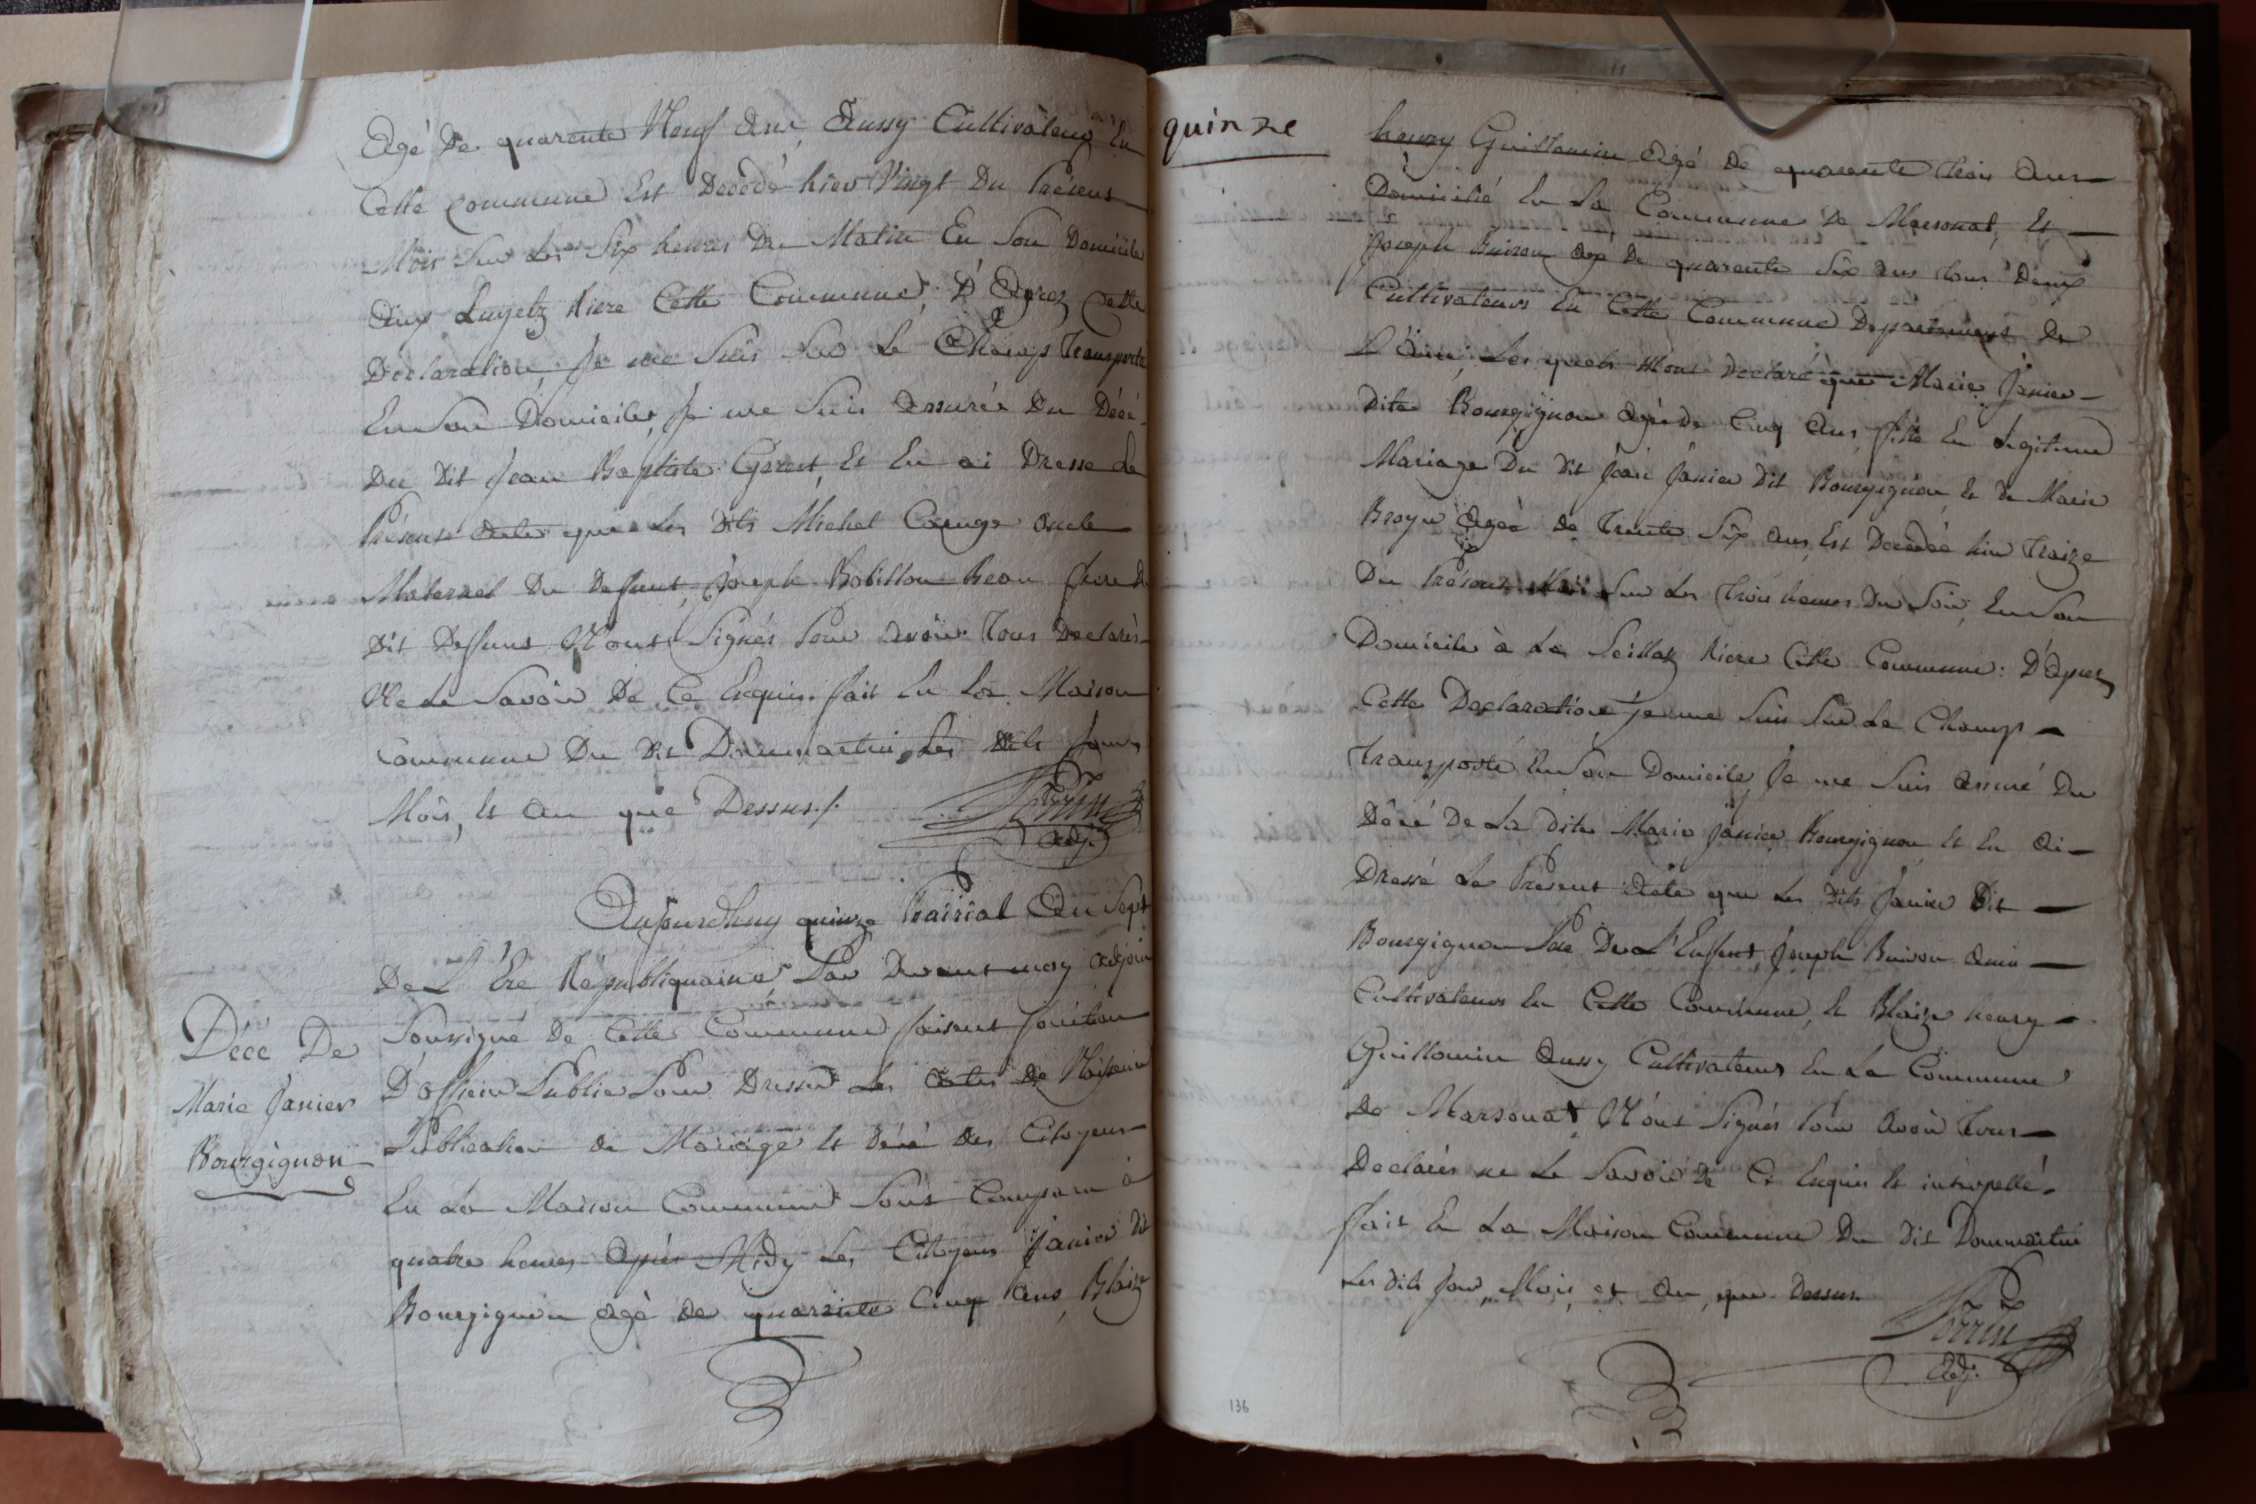 Agé De quarente Neuf Ans, Aussy Cultivateur En
Cette Commune Est Decedé hier Vingt Du Présent
Mois Sur Les Six heures Du Matin En Son Domicile
Aux Luyetz Riere Cette Commune, D'Aprez Cette
Déclaration Je me Suis Sur Le Champs Transporté
En Son Domicile, Je me Suis assurée Du Décé
Du Dit Jean Baptiste Et En ai Dressé Le
Présent Acte que Les Dits Michel oncle
Maternel Du Deffunt, Joseph Robillon Beau frere Du
Dit Deffunt N'ont Signés Pour Avoir Tous Declarés
Ne Le Savoir De Ce Enquis. fait En La Maison
Commune Du Dit Dommartin, Les Dits Jour,
Mois, Et An que Dessus./.
Perrin
Adj.
Aujourdhuy quinze Prairial An Sept
De L'Ére Républiquaine, Par Devant moy Adjoin
Soussigné De Cette Commune faisent fonction
D'officier Public Pour Dresser Les Actes De Naissence
Publication de Mariage Et décé Des Citoyens
En La Maison Commune Sont Comparu à
quatre heures Après Midy Les Citoyens Janier dit
Bourgignon Agé de quarante Cinq Ans, Blaize
Décé De
Marie Janier
Bourgignon
quinze
henry Guillomin Agé De quarente trois Ans
Domicilié En La Commune De Marsonat, Et
Joseph Buiron Agé De quarente Six ans tous Deux
Cultivateurs En Cette Commune Departement De
L'Ain, Les quels M'ont Declaré que Marie Janier
Dite Bourgignon Agée de Cinq Ans, fille En Legitime
Mariage Du Dit Jean Janier Dit Bourgignon Et De Marie
Broye Agée de Trente Six Ans, Est Decedée hier Traize
Du Présent Mois Sur Les Trois heures Du Soir, En Son
Domicile à La Seillat Riere Cette Commune: D'Aprez
Cette Declaration je me Suis Sur Le Champ
Transporté En Son Domicile, Je me Suis assuré Du
Décé De La Dite Marie Janier Bourgignon Et En Ai
Dressé Le Present Acte que Les Dits Janier Dit
Bourgignon Père De L'Enfent, Joseph Buiron Amis
Cultivateurs En Cette Commune, Et Blaize henry
Guillomin Aussy Cultivateur En La Commune
De Marsonat N'ont Signés Pour Avoir Tous
Declarés ne Le Savoir De Ce Enquis Et interpellé.
fait En La Maison Commune Du Dit Dommartin
Les Dits Jour, Mois, et An, que Dessus
Perrin
Adj.
136